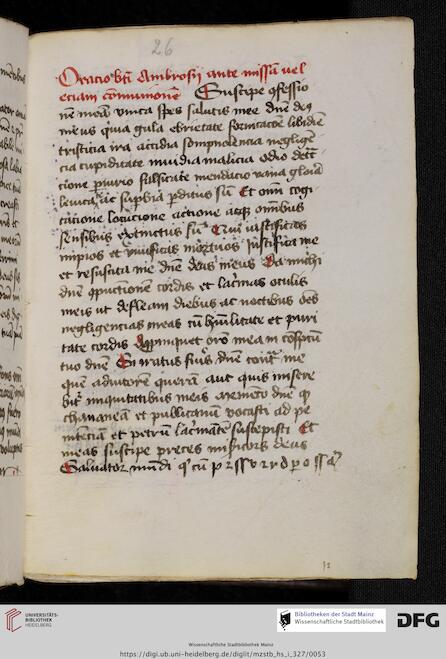 26
Oratio bti Ambrosij ante missam vel
etiam comunionem Suscipe ofessio
ne mea vnica spes salutis mee dne deq
meus quia gula ebrietate fornicacoe libidie
tristitia ira accidia sompnolencia negligen
cia cupiditate inuidia malicia odio detc
cione piurio falsitate mendacio vana gloia
leuitate ac supbia pditus su Et omi cogi
tacione locucione actione atq omibus
sensibus extinctus su Qui iustificas
impios et viuificas mortuos Justifica me
et resuscita me dne deus meus Da michi
dne opuctionem cordis et lacrimas oculis
meis ut defleam diebus ac noctibus oes
negligencias meas cu huilitate et puri
tate cordis Appinquet oro mea in cospctu
tuo dne Si iratus fuis dne cont me
que adiutore quera aut quis misere
bit iniquitatibus meis memeto dne q
chananea et pullicanu vocasti ad pe
nitecia et petru lacrimate suscepisti Et
meas suscipe preces misicors deus
Saluator mudi q cu p
12
UNIVERSITÄTS-
BIBLIOTHEK
HEIDELBERG
Bibliotheken der Stadt Mainz
Wissenschaftliche Stadtbibliothek
DFG
Wissenschaftliche Stadtbibliothek Mainz
https://digi.ub.uni-heidelberg.de/diglit/mzstb_hs_i_327/0053